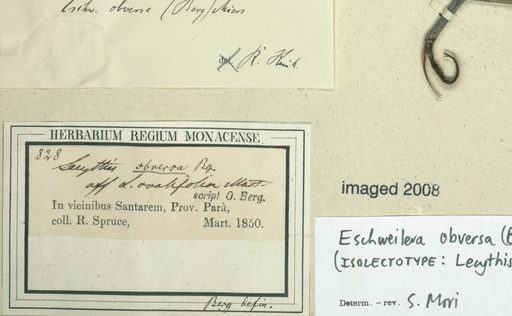 Eschw. obversa (Berg) Miers
det R. Knuth.
HERBARIUM REGIUM MONACENSE.
828
Lecythis obversa Bg.
aff L. ovalifolia Mart.
script O. Berg.
In vicinibus Santarem, Prov. Parà,
coll. R. Spruce, Mart. 1850.
Berg defin.
imaged 2008
Eschweilera obversa (B
(ISOLECTOTYPE: Lecythis
Determ. – rev. S. Mori